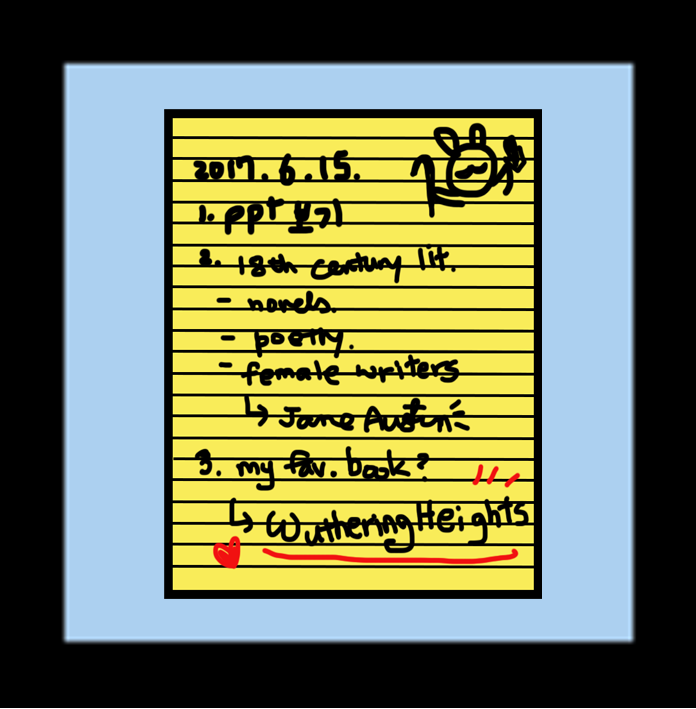 2017.6.15.
1. ppt 보기
2. 18th century lit.
- novels.
- poetry.
- female writers
↳ Jane Austin
3. my fav. book?
↳ Wuthering Heights